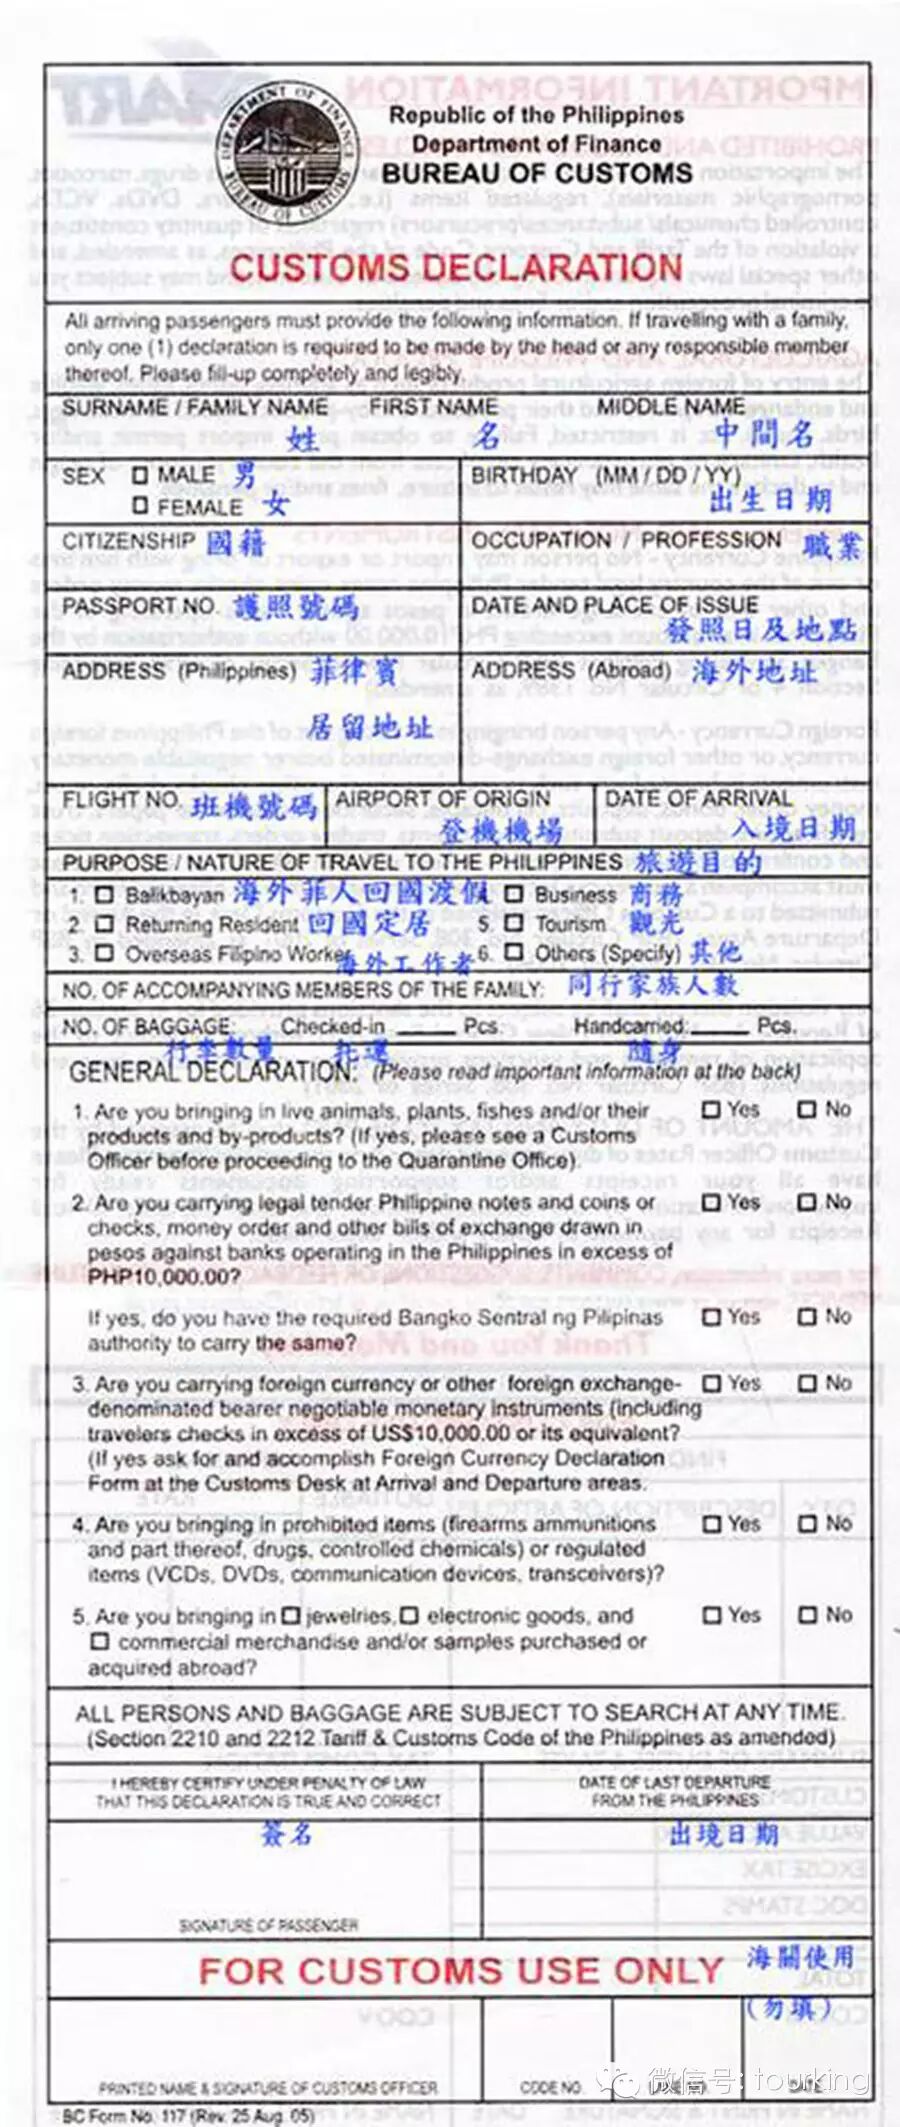 DEPARTMENT OF FINANCE
BUREAU OF CUSTOMS
Republic of the Philippines
Department of Finance
BUREAU OF CUSTOMS
CUSTOMS DECLARATION
All arriving passengers must provide the following information. If travelling with a family,
only one (1) declaration is required to be made by the head or any responsible member
thereof. Please fill-up completely and legibly.
SURNAME / FAMILY NAME FIRST NAME MIDDLE NAME
姓 名 中間名
SEX MALE 男 BIRTHDAY (MM / DD / YY)
FEMALE 女 出生日期
CITIZENSHIP 國籍 OCCUPATION / PROFESSION 職業
PASSPORT NO. 護照號碼 DATE AND PLACE OF ISSUE
發照日及地點
ADDRESS (Philippines) 菲律賓 ADDRESS (Abroad) 海外地址
居留地址
FLIGHT NO. 班機號碼 AIRPORT OF ORIGIN DATE OF ARRIVAL
登機機場 入境日期
PURPOSE / NATURE OF TRAVEL TO THE PHILIPPINES 旅遊目的
1. Balikbayan 海外菲人回國渡假 Business 商務
2. Returning Resident 回國定居 5. Tourism 觀光
3. Overseas Filipino Worker 海外工作者 6. Others (Specify) 其他
NO. OF ACCOMPANYING MEMBERS OF THE FAMILY: 同行家族人數
NO. OF BAGGAGE: Checked-in ____ Pcs. Handcarried: ____ Pcs.
行李數量 托運 隨身
GENERAL DECLARATION: (Please read important information at the back)
1. Are you bringing in live animals, plants, fishes and/or their Yes No
products and by-products? (If yes, please see a Customs
Officer before proceeding to the Quarantine Office).
2. Are you carrying legal tender Philippine notes and coins or Yes No
checks, money order and other bills of exchange drawn in
pesos against banks operating in the Philippines in excess of
PHP10,000.00?
If yes, do you have the required Bangko Sentral ng Pilipinas Yes No
authority to carry the same?
3. Are you carrying foreign currency or other foreign exchange- Yes No
denominated bearer negotiable monetary instruments (including
travelers checks in excess of US$10,000.00 or its equivalent?
(If yes ask for and accomplish Foreign Currency Declaration
Form at the Customs Desk at Arrival and Departure areas.
4. Are you bringing in prohibited items (firearms ammunitions Yes No
and part thereof, drugs, controlled chemicals) or regulated
items (VCDs, DVDs, communication devices, transceivers)?
5. Are you bringing in jewelries, electronic goods, and Yes No
commercial merchandise and/or samples purchased or
acquired abroad?
ALL PERSONS AND BAGGAGE ARE SUBJECT TO SEARCH AT ANY TIME.
(Section 2210 and 2212 Tariff & Customs Code of the Philippines as amended)
I HEREBY CERTIFY UNDER PENALTY OF LAW DATE OF LAST DEPARTURE
THAT THIS DECLARATION IS TRUE AND CORRECT FROM THE PHILIPPINES
簽名 出境日期
SIGNATURE OF PASSENGER
FOR CUSTOMS USE ONLY 海關使用
(勿填)
PRINTED NAME & SIGNATURE OF CUSTOMS OFFICER CODE NO. DATE
微信号: tourking
BC Form No. 117 (Rev. 25 Aug. 05)